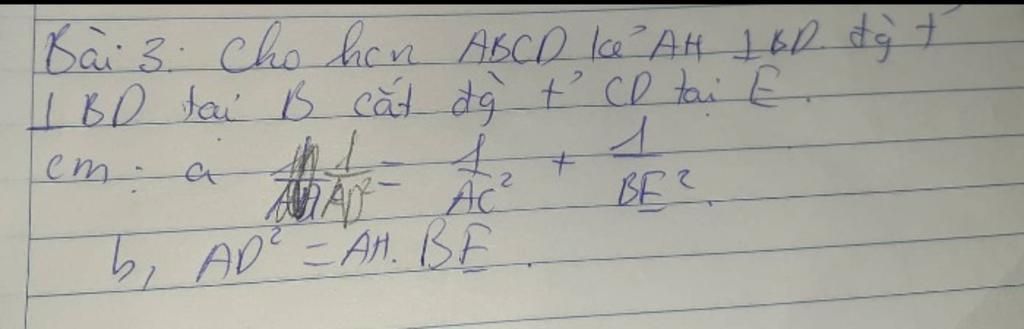 Bài 3: Cho hcn ABCD kẻ AH ⊥ BD. đg t'
⊥ BD tại B cắt đg t' CD tại E.
cm: a 1/AD² = 1/AC² + 1/BE².
b, AD² = AH. BE.